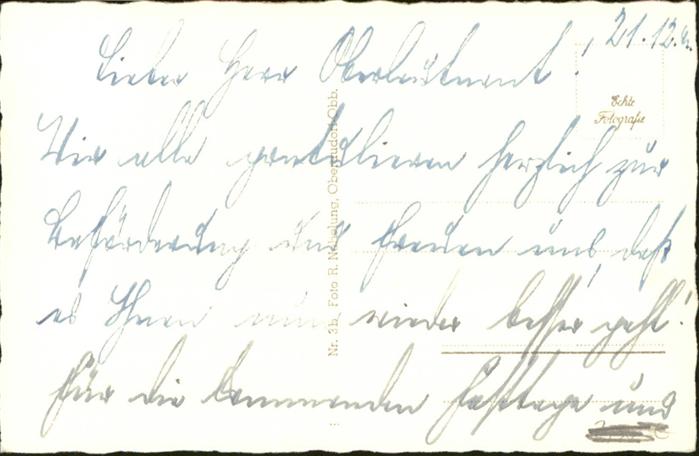 21.12.
Lieber Herr Oberleutnant!
Echte
Fotografie
Wir alle gratulieren herzlich zur
Beförderung und freuen uns, daß
es Ihnen nun wieder besser geht!
Für die kommenden Festtage und
Nr. 3b. Foto R. Oberaudorf Obb.